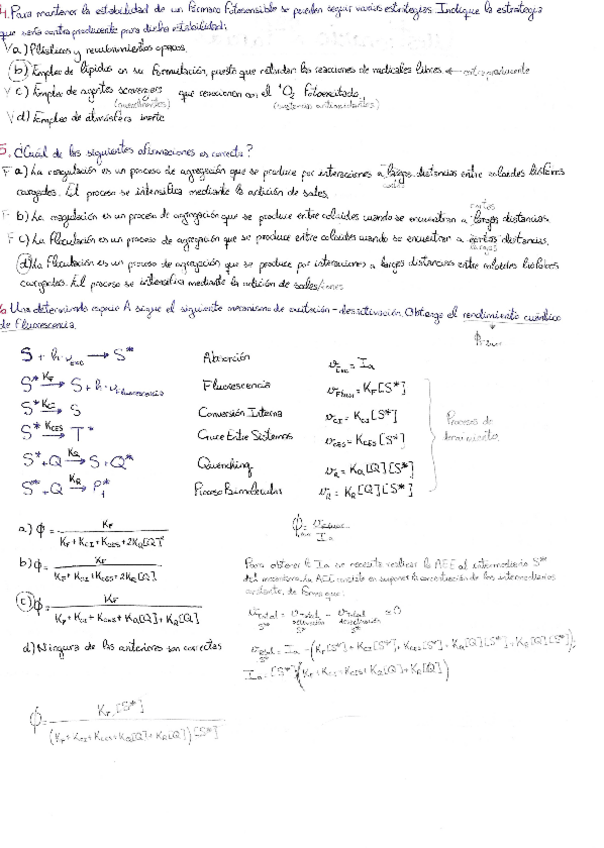 4. Para mantener la estabilidad de un fármaco fotosensible se pueden seguir varias estrategias. Indique la estrategia
que sería contraproducente para dicha estabilidad:
V a) Plásticos y recubrimientos opacos.
b) Empleo de lípidos en su formulación, puesto que retardan las reacciones de radicales libres. ← contraproducente
V c) Empleo de agentes scavengers que reaccionan con el ¹O₂ fotoexcitado
V d) Empleo de atmósfera inerte
5. ¿Cuál de las siguientes afirmaciones es correcta?
F a) La coagulación es un proceso de agregación que se produce por interacciones a largas distancias entre coloides
cortas
cargados. El proceso se intensifica mediante la adición de sales.
cortas
F b) La coagulación es un proceso de agregación que se produce entre coloides cuando se encuentran a largas distancias.
F c) La floculación es un proceso de agregación que se produce entre coloides cuando se encuentran a cortas distancias.
largas
d) La floculación es un proceso de agregación que se produce por interacciones a largas distancias entre coloides
cargados. El proceso se intensifica mediante la adición de sales/iones
6. Una determinada especie A sigue el siguiente mecanismo de excitación-desactivación. Obtenga el rendimiento cuántico
de fluorescencia.
S + h·ν → S* Absorción = Ia
S* KF→ S + h·ν Fluorescencia Fluorescencia = KF[S*]
S* KCI→ S Conversión Interna vCI = KCI[S*]
S* KCES→ T* Cruce Entre Sistemas vCES = KCES[S*]
Procesos de
S* + Q KQ→ S + Q* Quenching vQ = KQ[Q][S*]
S* + Q KR→ P₁* Proceso Bimolecular vR = KR[Q][S*]
a) ϕ = KF / KF + KCI + KCES + 2KQ[Q]²
b) ϕ = KF / KF + KCI + KCES + 2KQ[Q]
c) ϕ = KF / KF + KCI + KCES + KQ[Q] + KR[Q]
d) Ninguna de las anteriores son correctas
Para obtener Ia se necesita realizar la AEE al intermediario S*
del mecanismo. La AEE consiste en suponer la concentración de los intermediarios
constante, de forma que:
vtotal = vtotal - vtotal = 0
vtotal = Ia - (KF[S*] + KCI[S*] + KCES[S*] + KQ[Q][S*] + KR[Q][S*]);
Ia = [S*](KF + KCI + KCES + KQ[Q] + KR[Q])
ϕ = KF·[S*] / (KF + KCI + KCES + KQ[Q] + KR[Q])[S*]